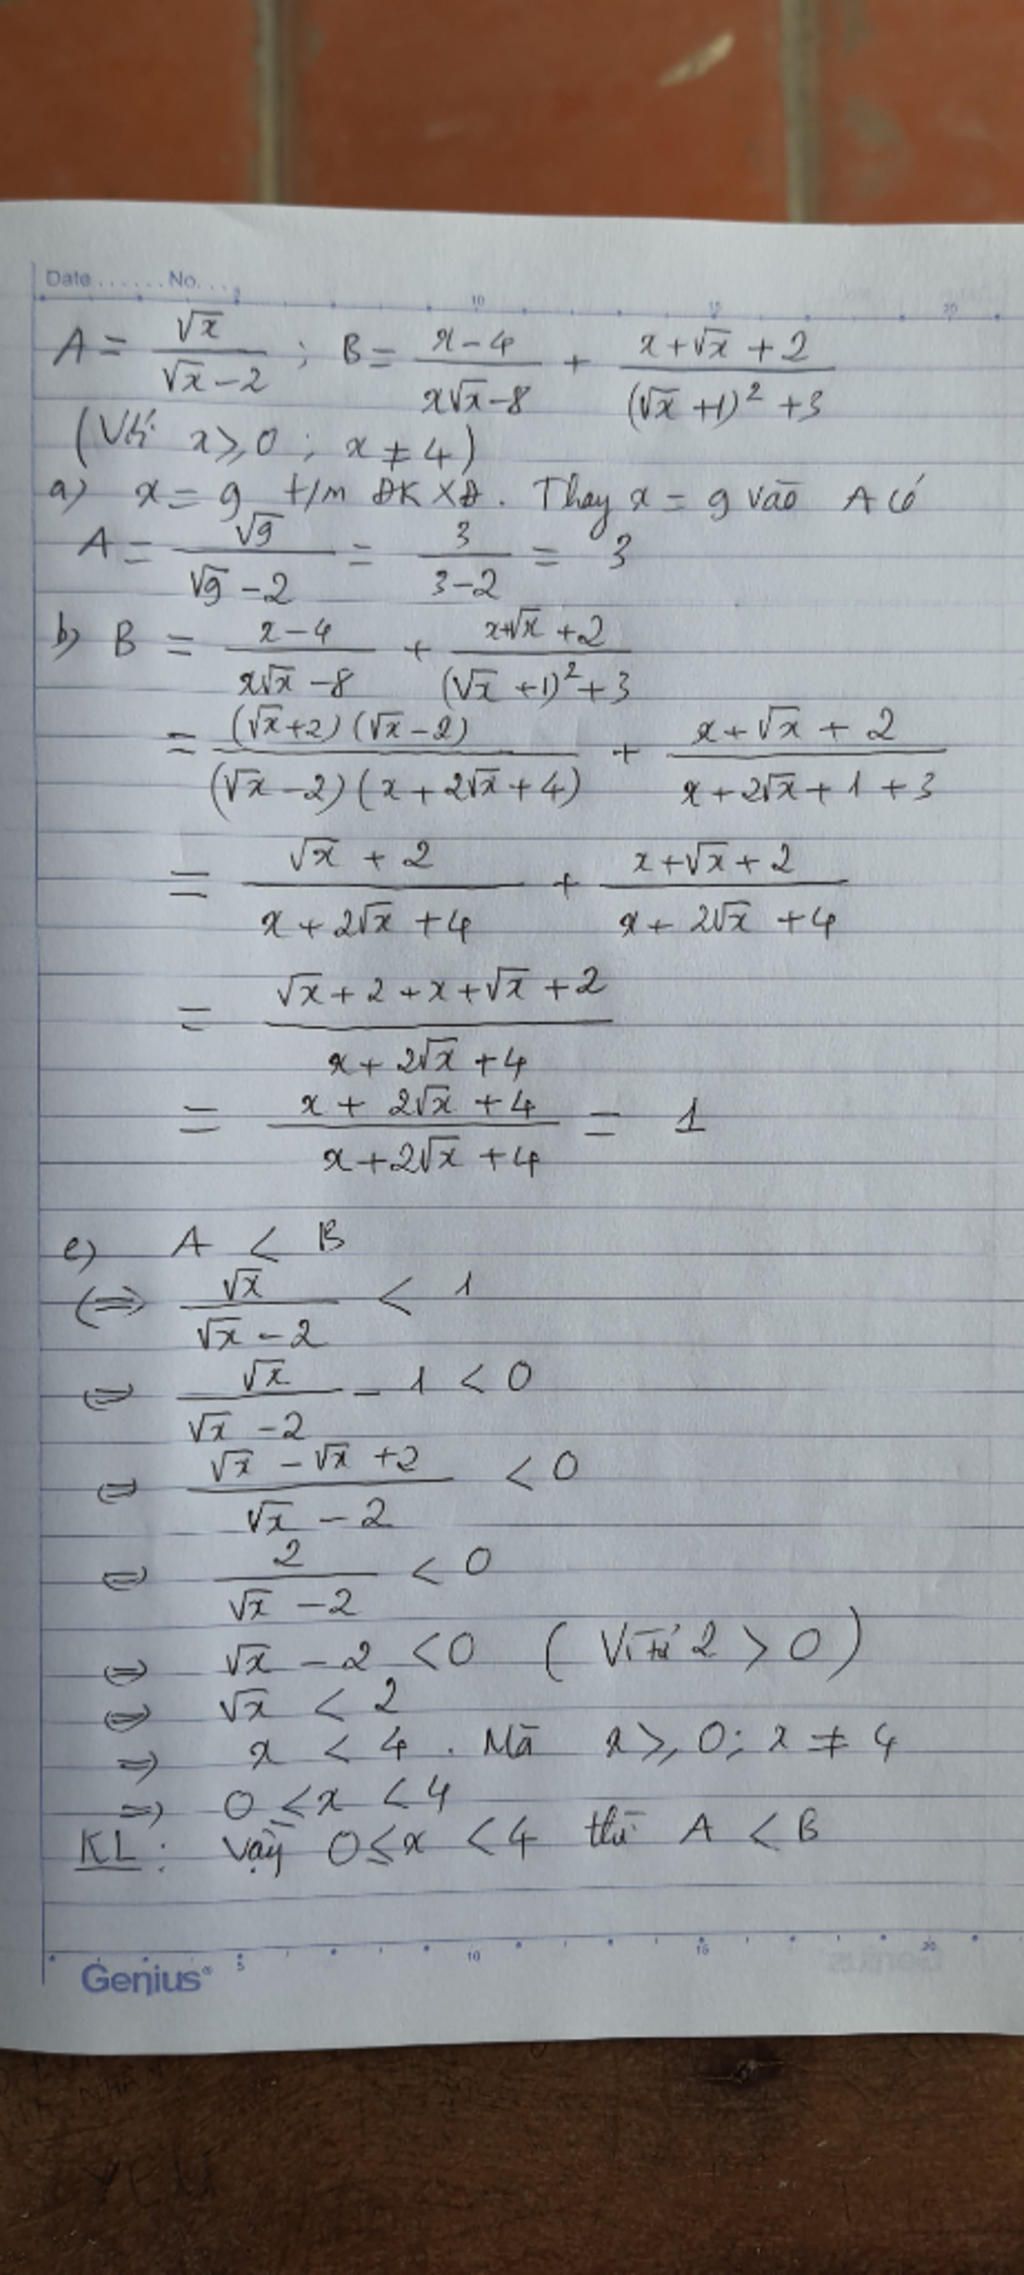 Date ...... No. ...
5 10 15 20
A = √x/(√x-2) ; B = (x-4)/(x√x-8) + (x+√x+2)/((√x+1)²+3)
(Với x ≥ 0 ; x ≠ 4)
a) x = 9 t/m ĐKXĐ. Thay x = 9 vào A có
A = √9/(√9-2) = 3/(3-2) = 3
b) B = (x-4)/(x√x-8) + (x+√x+2)/((√x+1)²+3)
= (√x+2)(√x-2)/((√x-2)(x+2√x+4)) + (x+√x+2)/(x+2√x+1+3)
= (√x+2)/(x+2√x+4) + (x+√x+2)/(x+2√x+4)
= (√x+2+x+√x+2)/(x+2√x+4)
= (x+2√x+4)/(x+2√x+4) = 1
c) A < B
(⇔) √x/(√x-2) < 1
⇔ √x/(√x-2) - 1 < 0
⇔ (√x-√x+2)/(√x-2) < 0
⇔ 2/(√x-2) < 0
⇔ √x - 2 < 0 (Vì tử 2 > 0)
⇔ √x < 2
⇒ x < 4. Mà x ≥ 0; x ≠ 4
⇒ 0 ≤ x < 4
KL: Vậy 0 ≤ x < 4 thì A < B
Genius® 5 10 15 20